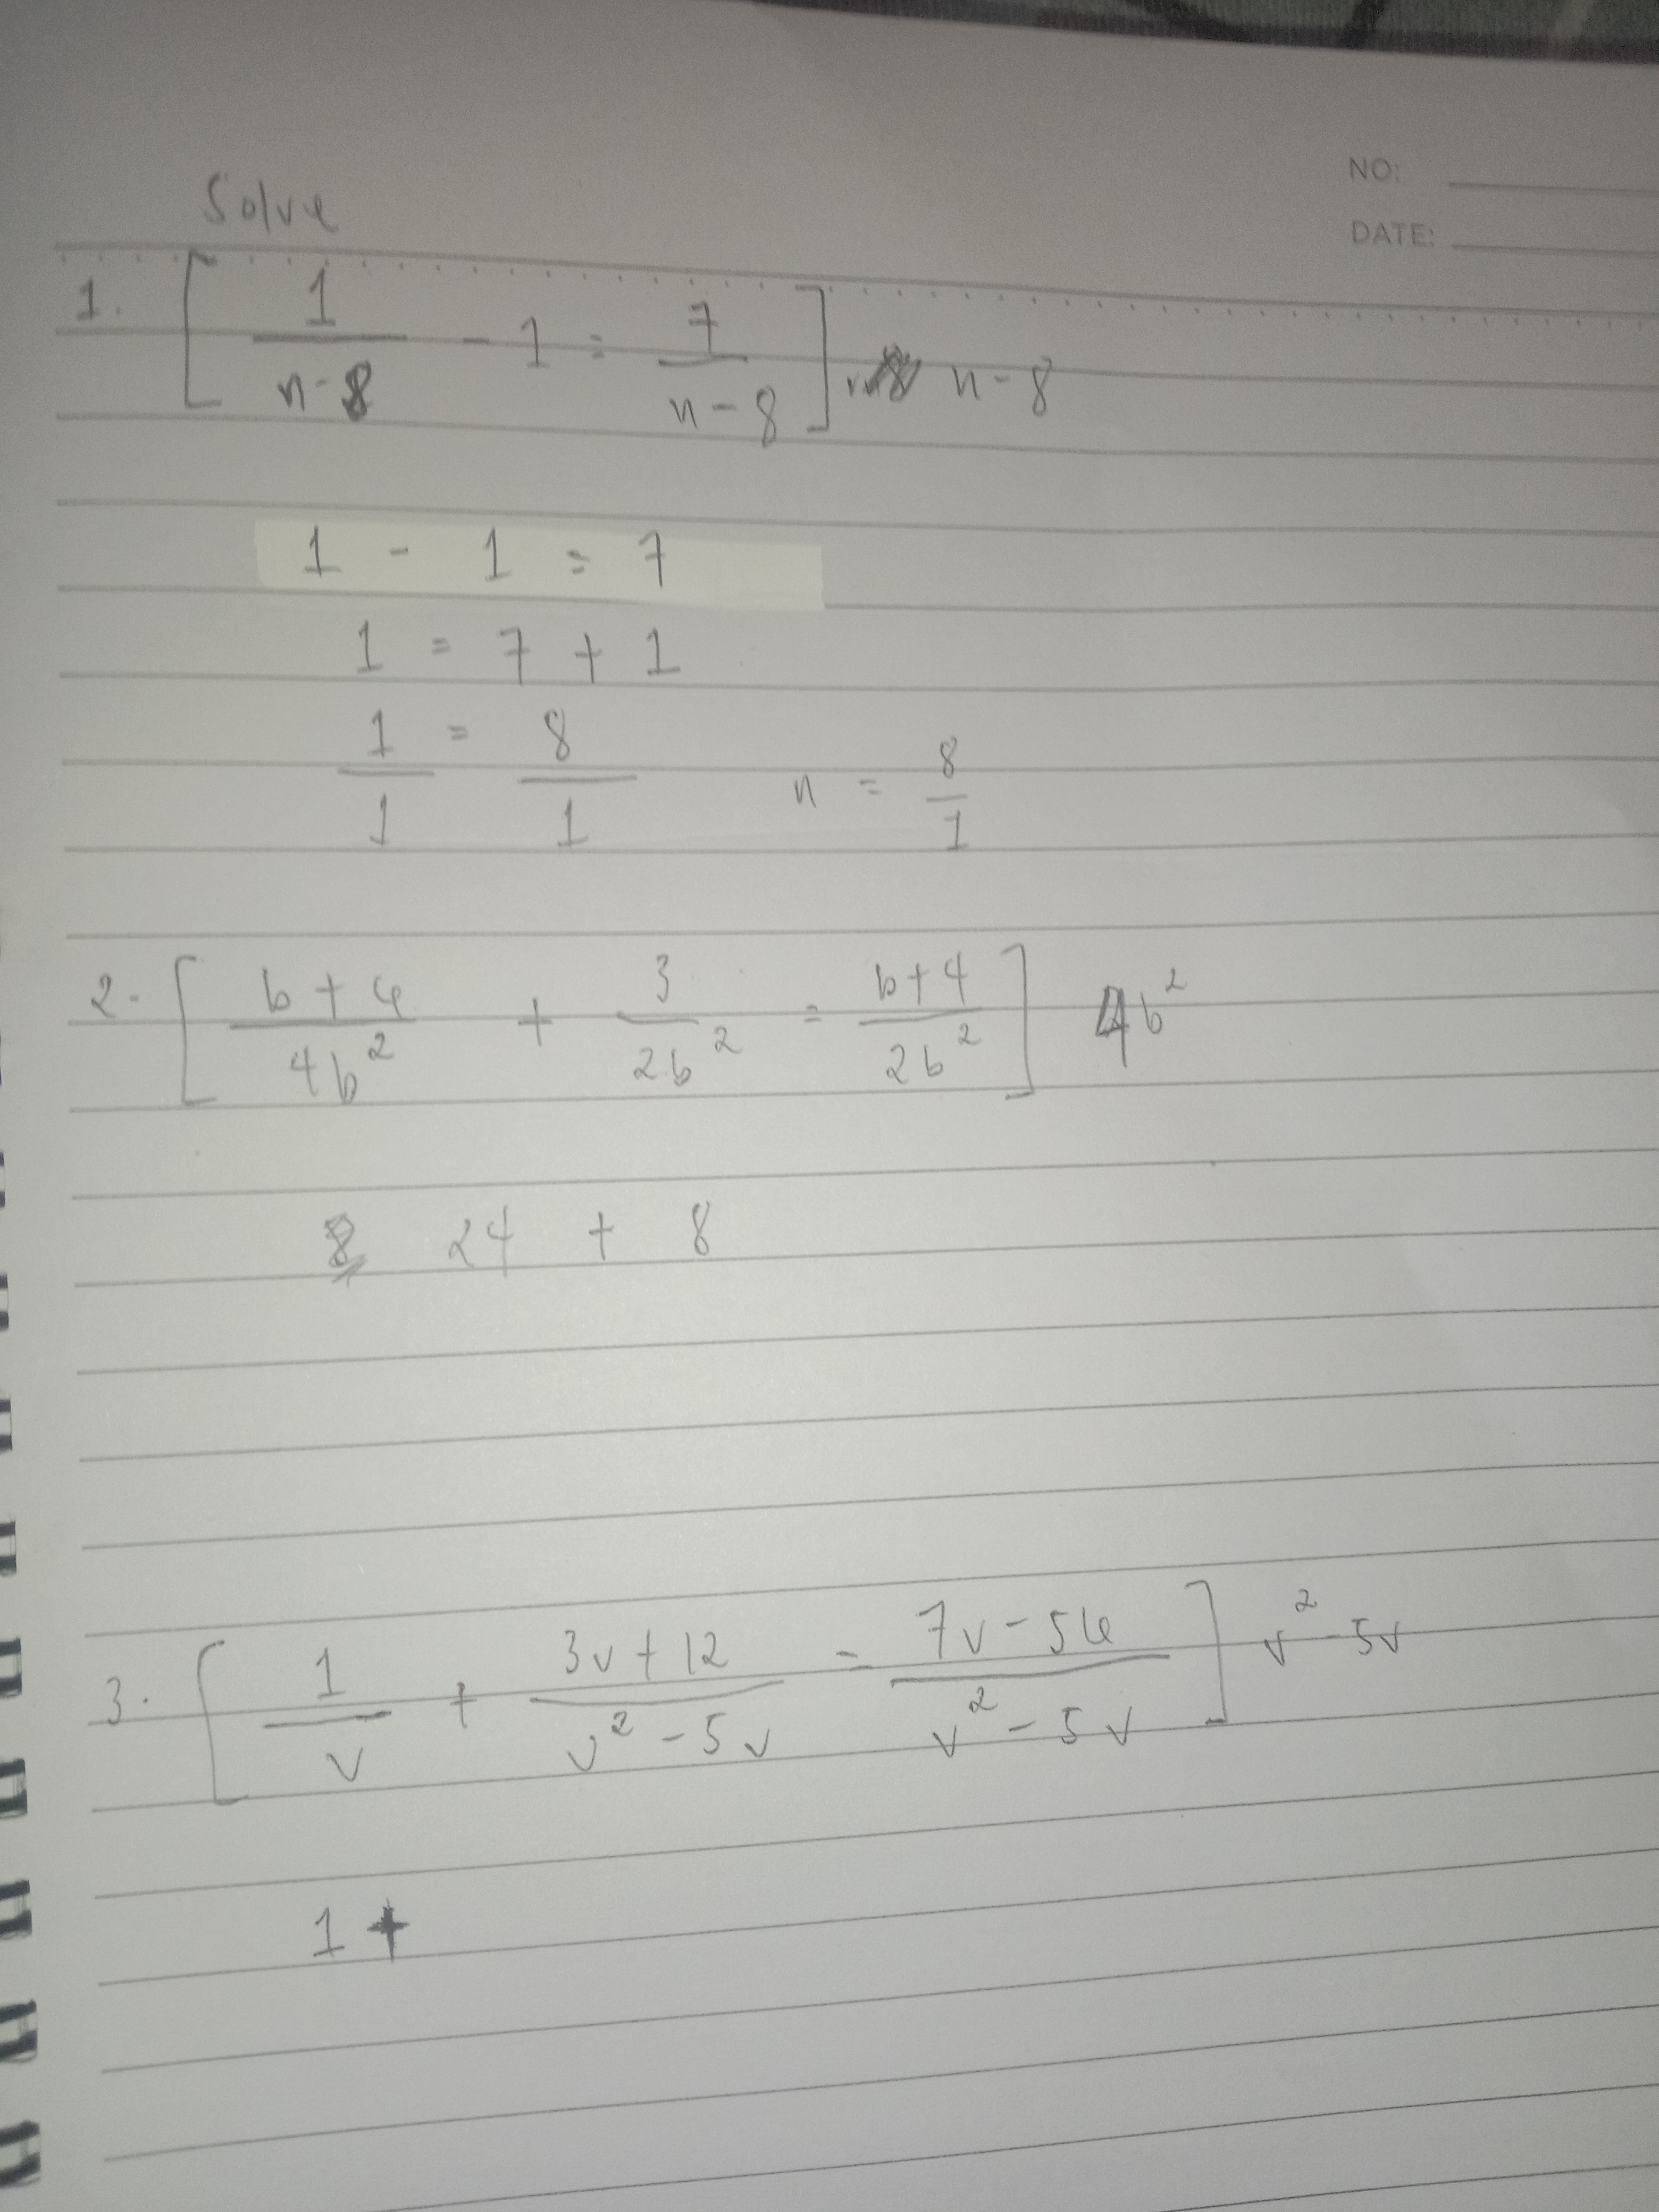 NO:
DATE:
Solve
1. [ 1/(n-8) - 1 = 7/(n-8) ] n-8
1 - 1 = 7
1 = 7 + 1
1/1 = 8/1 n = 8/1
2. [ (b+4)/(4b²) + 3/(2b²) = (b+4)/(2b²) ] 4b²
24 + 8
3. [ 1/v + (3v+12)/(v²-5v) = (7v-56)/(v²-5v) ] v²-5v
1 +